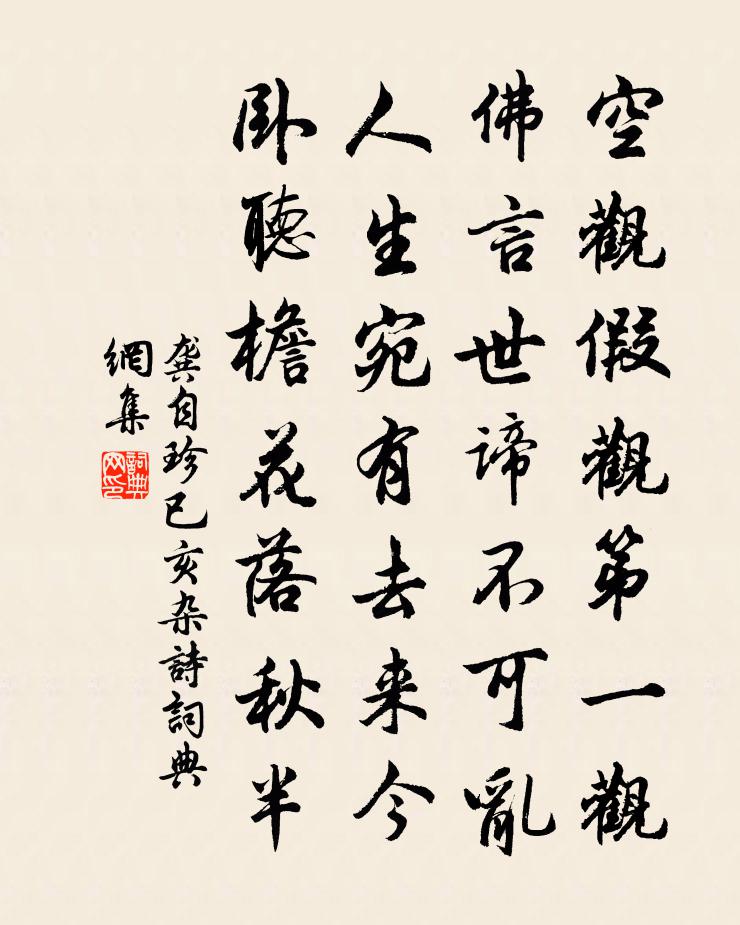 空觀假觀第一觀
佛言世諦不可亂
人生宛有去来今
卧聽檐花落秋半
龚自珍己亥杂詩詞典
網集
詞典
网印